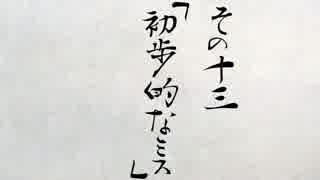 その十三
「初歩的なミス」